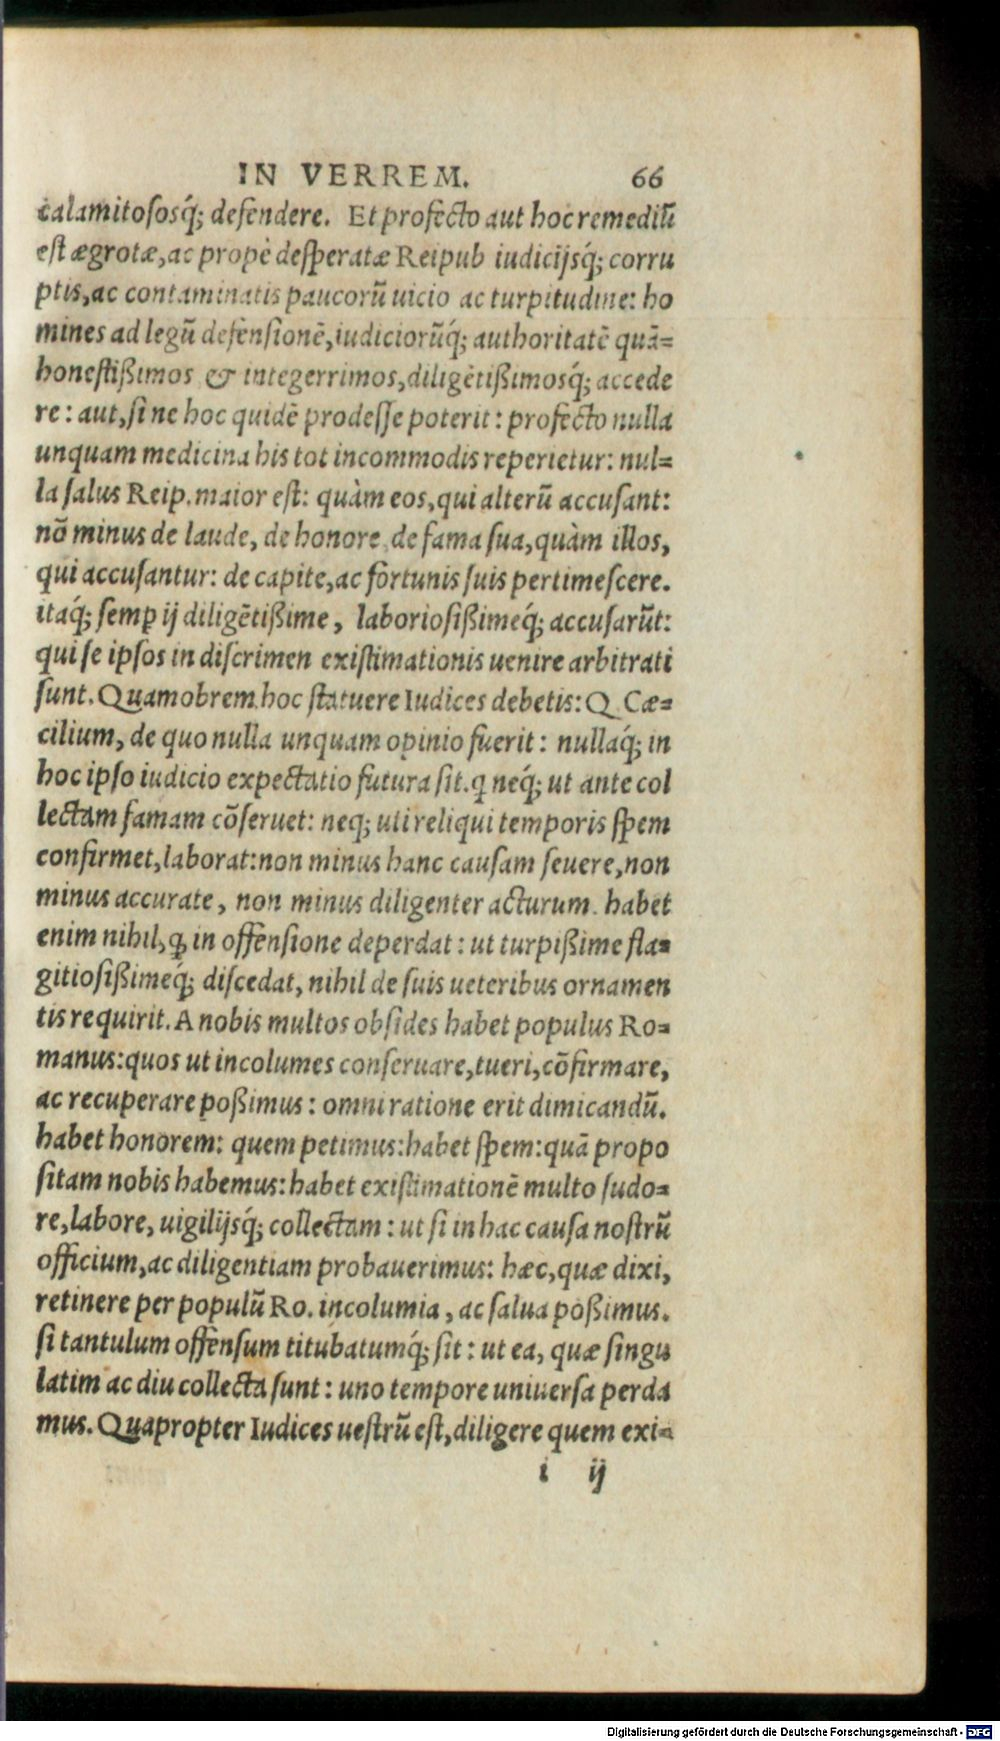 IN VERREM. 66
calamitososq́; defendere. Et profecto aut hoc remediũ
est ægrotæ, ac propè desperatæ Reipub iudicijsq́; corru
ptis, ac contaminatis paucorũ uicio ac turpitudine: ho
mines ad legũ defensionẽ, iudiciorũq́; authoritatẽ quã=
honestißimos & integerrimos, diligẽtißimosq́; accede
re: aut, si ne hoc quidẽ prodesse poterit: profecto nulla
unquam medicina his tot incommodis reperietur: nul=
la salus Reip. maior est: quàm eos, qui alterũ accusant:
nõ minus de laude, de honore de fama sua, quàm illos,
qui accusantur: de capite, ac fortunis suis pertimescere.
itaq́; semꝑ ij diligẽtißime, laboriosißimeq́; accusarũt:
qui se ipsos in discrimen existimationis uenire arbitrati
sunt. Quamobrem hoc statuere Iudices debetis: Q. Cæ=
cilium, de quo nulla unquam opinio fuerit: nullaq́; in
hoc ipso iudicio expectatio futura sit. q neq́; ut ante col
lectam famam cõseruet: neq; uti reliqui temporis spem
confirmet, laborat: non minus hanc causam seuere, non
minus accurate, non minus diligenter acturum. habet
enim nihil, ꝙ in offensione deperdat: ut turpißime fla=
gitiosißimeq́; discedat, nihil de suis ueteribus ornamen
tis requirit. A nobis multos obsides habet populus Ro=
manus: quos ut incolumes conseruare, tueri, cõfirmare,
ac recuperare poßimus: omni ratione erit dimicandũ.
habet honorem: quem petimus: habet spem: quã propo
sitam nobis habemus: habet existimationẽ multo sudo=
re, labore, uigilijsq́; collectam: ut si in hac causa nostrũ
officium, ac diligentiam probauerimus: hæc, quæ dixi,
retinere per populũ Ro. incolumia, ac salua poßimus.
si tantulum offensum titubatumq́; sit: ut ea, quæ singu
latim ac diu collecta sunt: uno tempore uniuersa perda
mus. Quapropter Iudices uestrũ est, diligere quem exi=
i ij
Digitalisierung gefördert durch die Deutsche Forschungsgemeinschaft - DFG